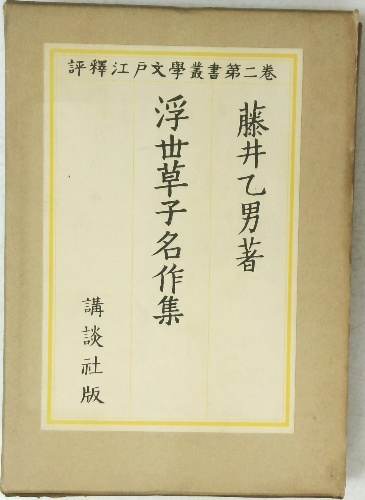 評釋江戸文學叢書第二卷
藤井乙男著
浮世草子名作集
講談社版